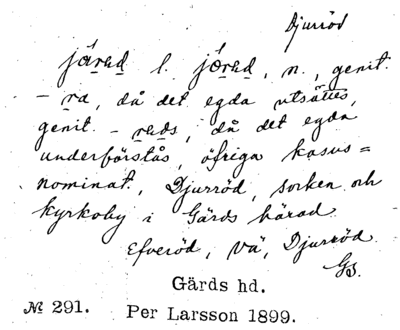 Djurröd
järud l. jörud, n., genit.
- ra, då det egda utsättes,
genit. - ruds, då det egda
underförstås, öfriga kasus =
nominat., Djurröd, socken och
kyrkoby i Gärds härad.
Efveröd, Vä, Djurröd.
Gs.
Gärds hd.
№ 291. Per Larsson 1899.